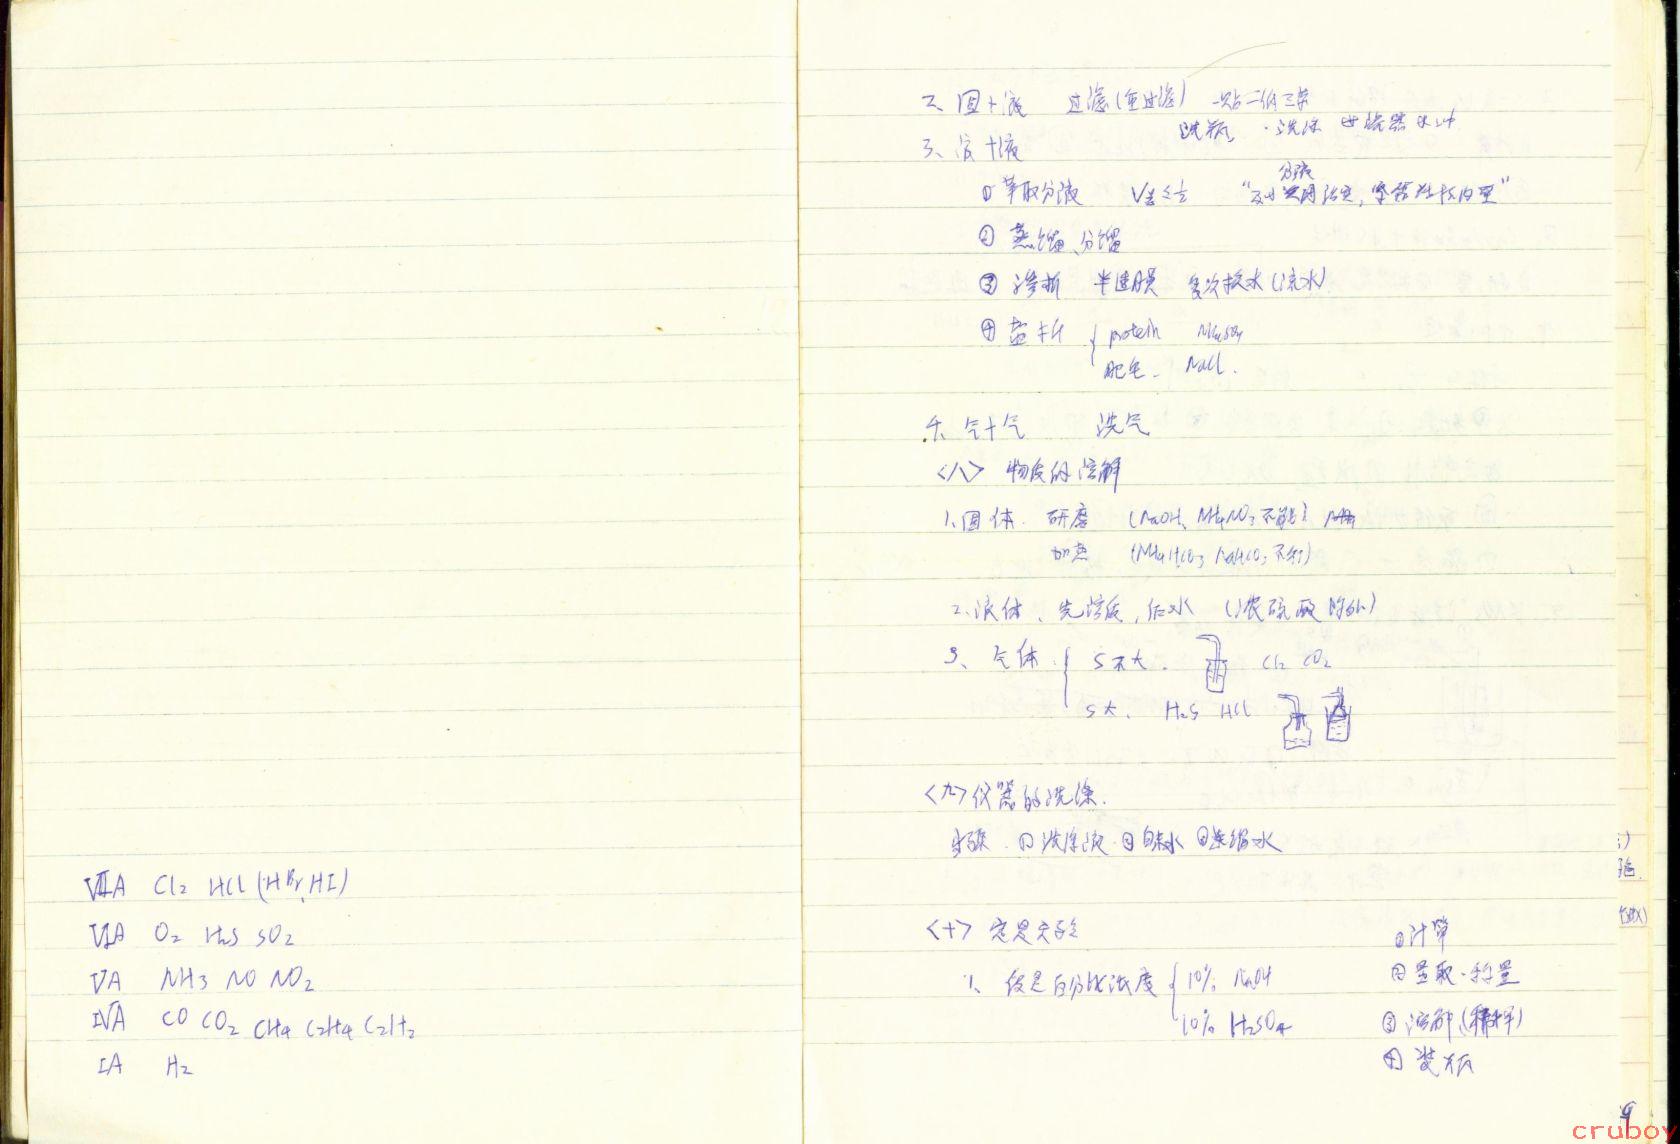 ⅦA Cl₂ HCl (HBr, HI)
ⅥA O₂ H₂S SO₂
ⅤA NH₃ NO NO₂
ⅣA CO CO₂ CH₄ C₂H₄ C₂H₂
ⅠA H₂
二、固+液 过滤(重过滤) 一贴二低三靠
洗瓶
三、液+液
① 萃取分液
分液
② 蒸馏、分馏
③ 渗析 半透膜 多次换水(流水)
④ 盐析 { protein
肥皂. NaCl.
四、气+气 洗气
<八> 物质的溶解
1.固体. 研磨 (NaOH、NH₄NO₃不能)
加热 (NH₄HCO₃ NaHCO₃不行)
2.液体、先溶质,后水 (浓硫酸除外)
3、气体. { S不大. Cl₂ CO₂
S大. H₂S HCl
<九>仪器的洗涤.
步骤. ①洗涤液. ②自来水 ③蒸馏水
<十> 定量实验
1、质量百分比浓度 { 10% NaOH
10% H₂SO₄
①计算
②量取.称量
③溶解(搅拌)
④装瓶
9
cruboy